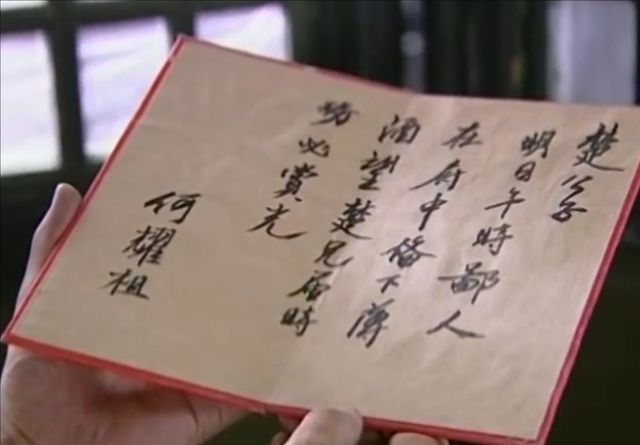 楚公子
明日午時鄙人
在府中備下薄
酒望楚兄届時
務必賞光
何耀祖